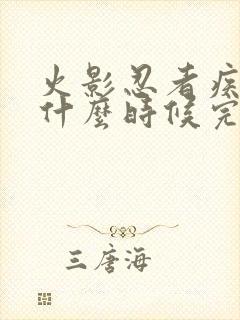 火影忍者疾
什麼時候完
三唐海